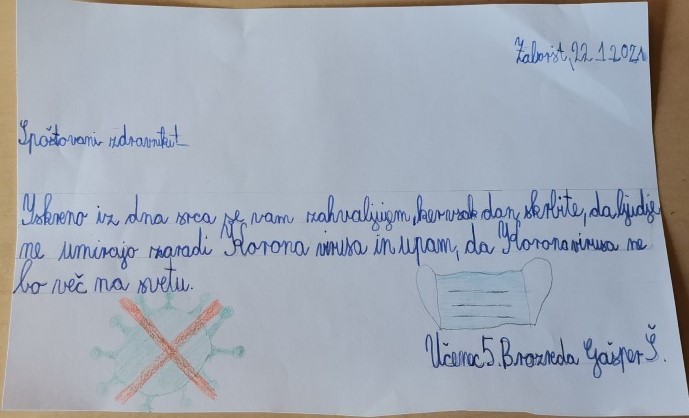 Zaboršt, 22.1.2021
Spoštovani zdravniki!
Iskreno iz dna srca se vam zahvaljujem, ker vsak dan skrbite, da ljudje
ne umirajo zaradi Korona virusa in upam, da Koronavirusa ne
bo več na svetu.
Učenec 5. B razreda Gašper Š.